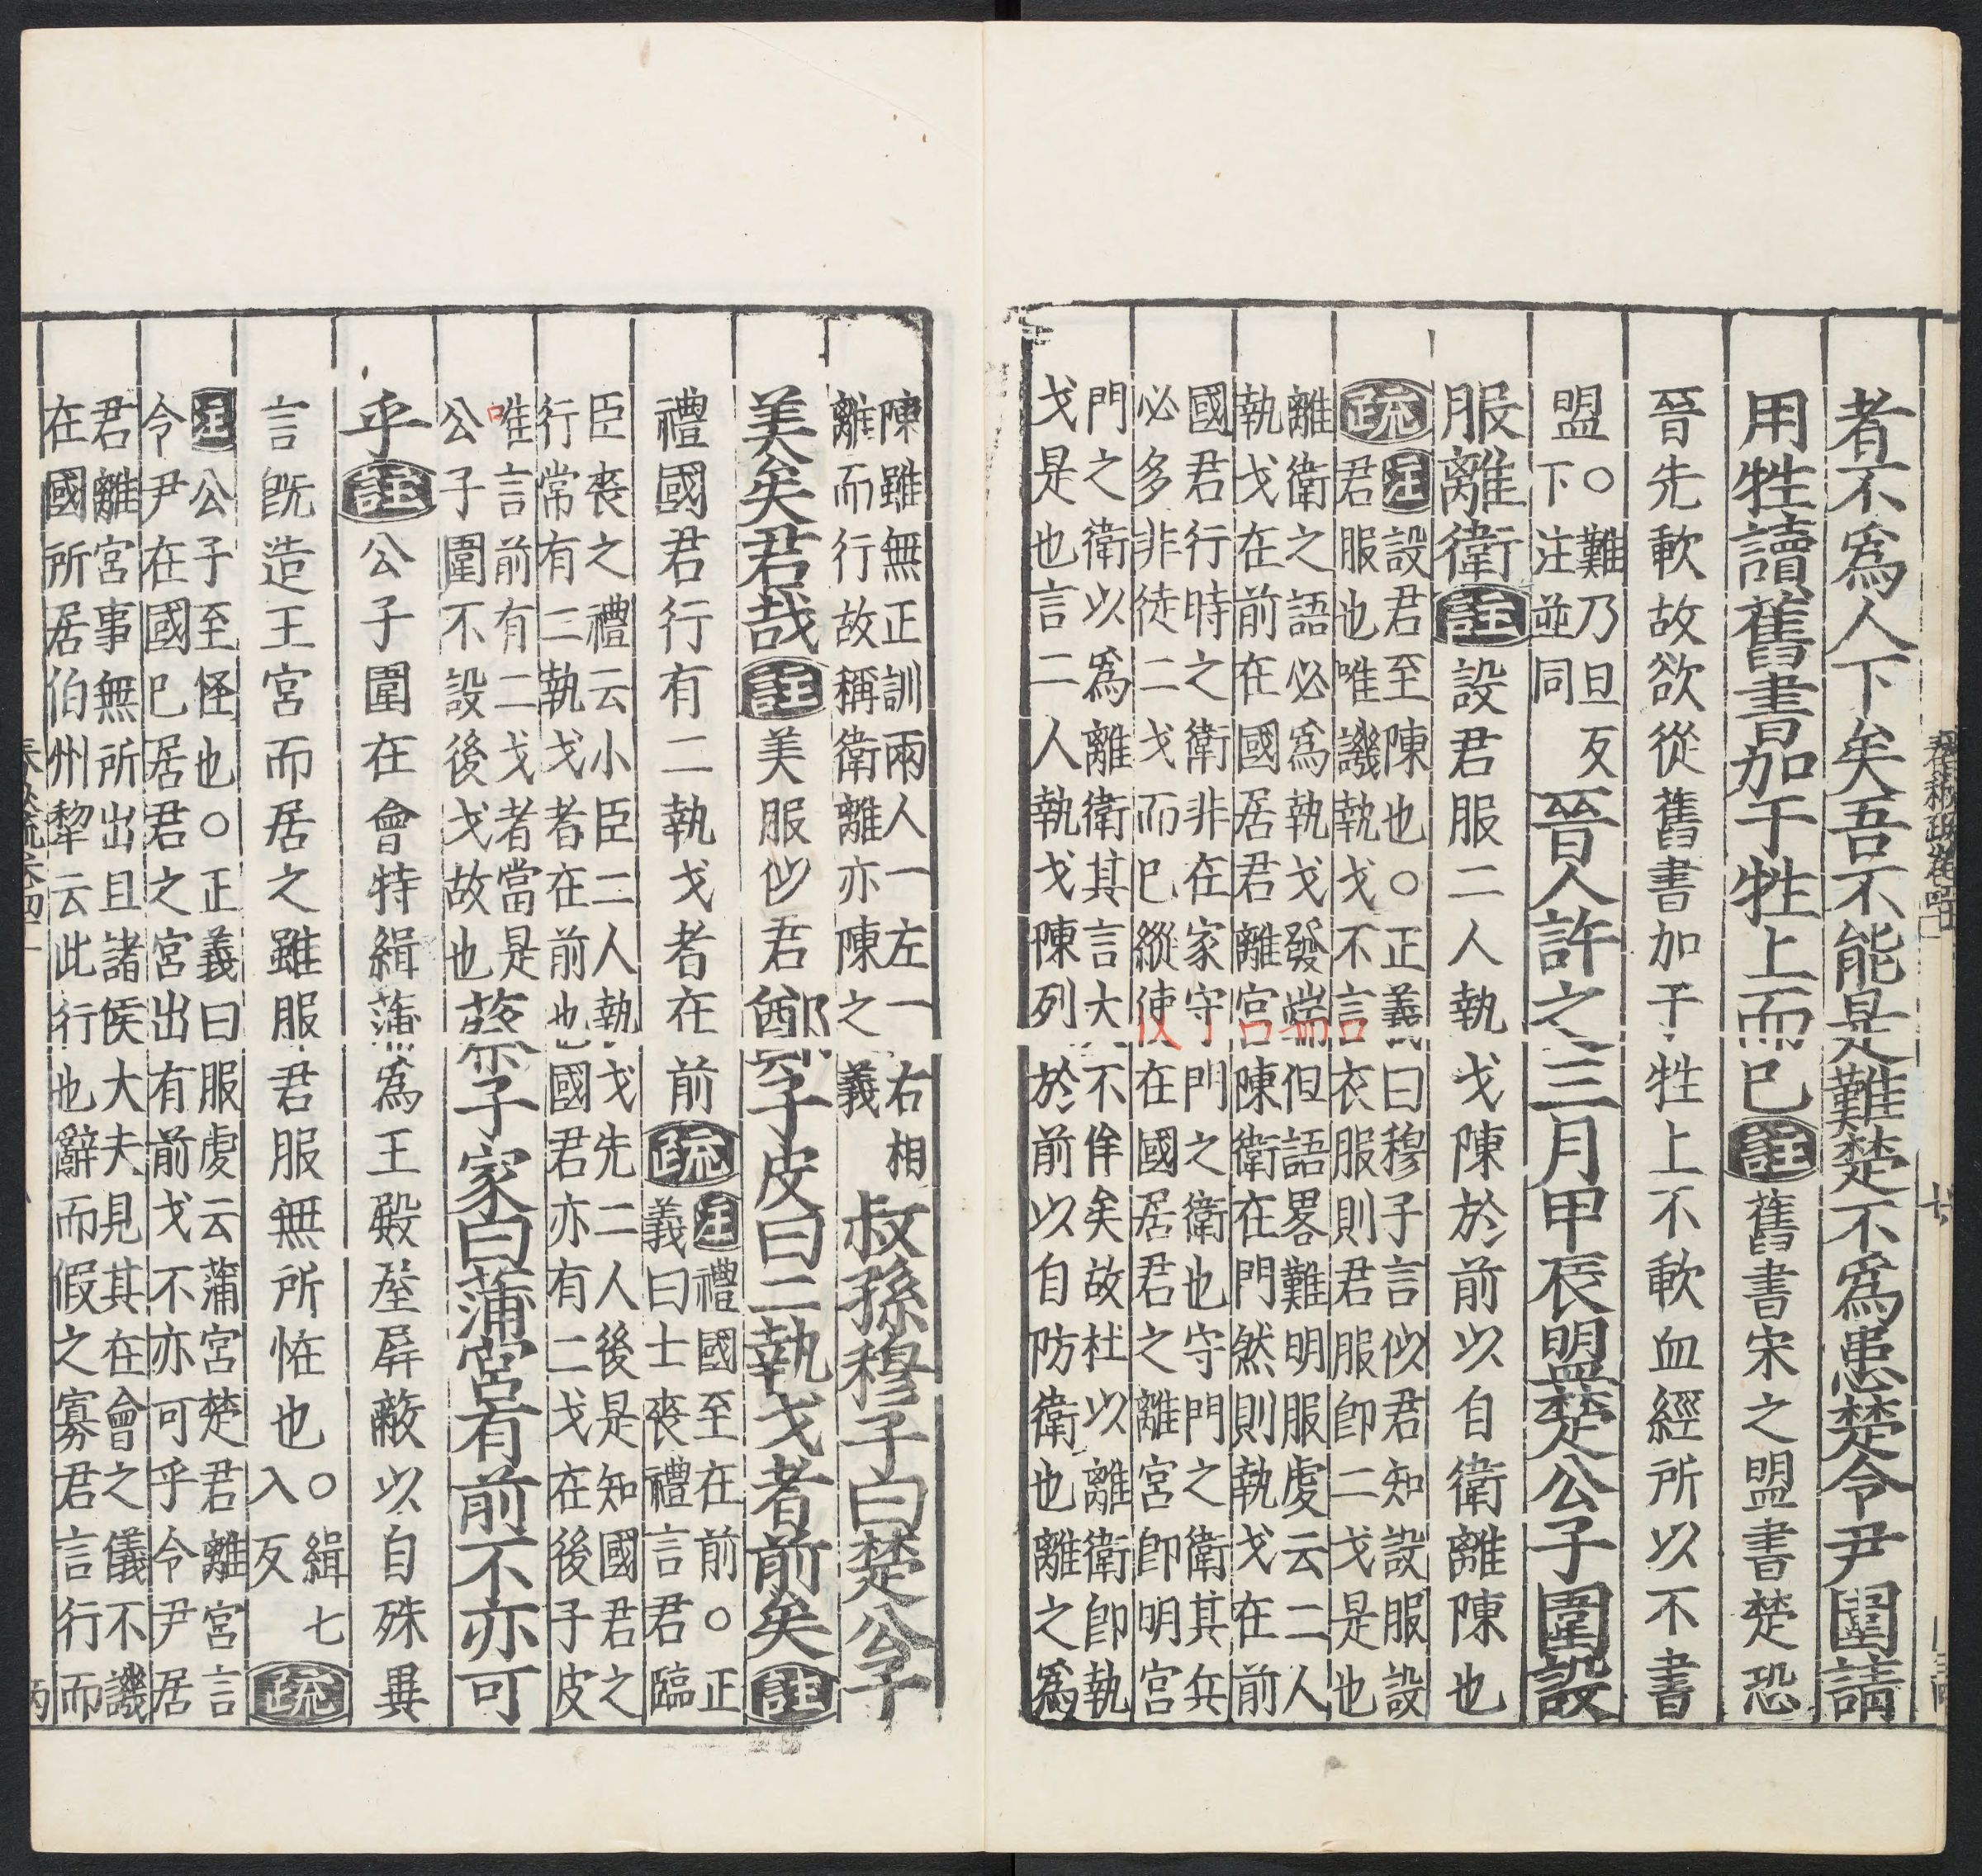 者不爲人下矣吾不能是難楚不爲患楚令尹圍請
用牲讀舊書加于牲上而已註舊書宋之盟書楚恐
晉先歃故欲從舊書加于牲上不歃血經所以不書
盟○難乃旦反
下注並同
晉人許之三月甲辰盟楚公子圍設
服離衛註設君服二人執戈陳於前以自衛離陳也
疏注設君至陳也○正義曰穆子言似君知設服設
君服也唯譏執戈不言衣服則君服即二戈是也
離衛之語必爲執戈發端但語畧難明服虔云二人
執戈在前在國居君離宮陳衛在門然則執戈在前
國君行時之衛非在家守門之衛也守門之衛其兵
必多非徒二戈而已縱使在國居君之離宮即明宮
門之衛以爲離衛其言大不侔矣故杜以離衛即執
戈是也言二人執戈陳列於前以自防衛也離之爲
陳雖無正訓兩人一左一右相
離而行故稱衛離亦陳之義
叔孫穆子曰楚公子
美矣君哉註美服似君鄭子皮曰二執戈者前矣註
禮國君行有二執戈者在前疏
注禮國至在前○正
義曰士喪禮言君臨
臣喪之禮云小臣二人執戈先二人後是知國君之
行常有二執戈者在前也國君亦有二戈在後子皮
唯言前有二戈者當是
公子圍不設後戈故也
蔡子家曰蒲宮有前不亦可
乎註公子圍在會特緝蒲爲王殿屋屏蔽以自殊異
言旣造王宮而居之雖服君服無所恠也
○緝七
入反
疏
注公子至怪也○正義曰服虔云蒲宮楚君離宮言
令尹在國已居君之宮出有前戈不亦可乎令尹居
君離宮事無所出且諸侯大夫見其在會之儀不譏
在國所居伯州犂云此行也辭而假之寡君言行而